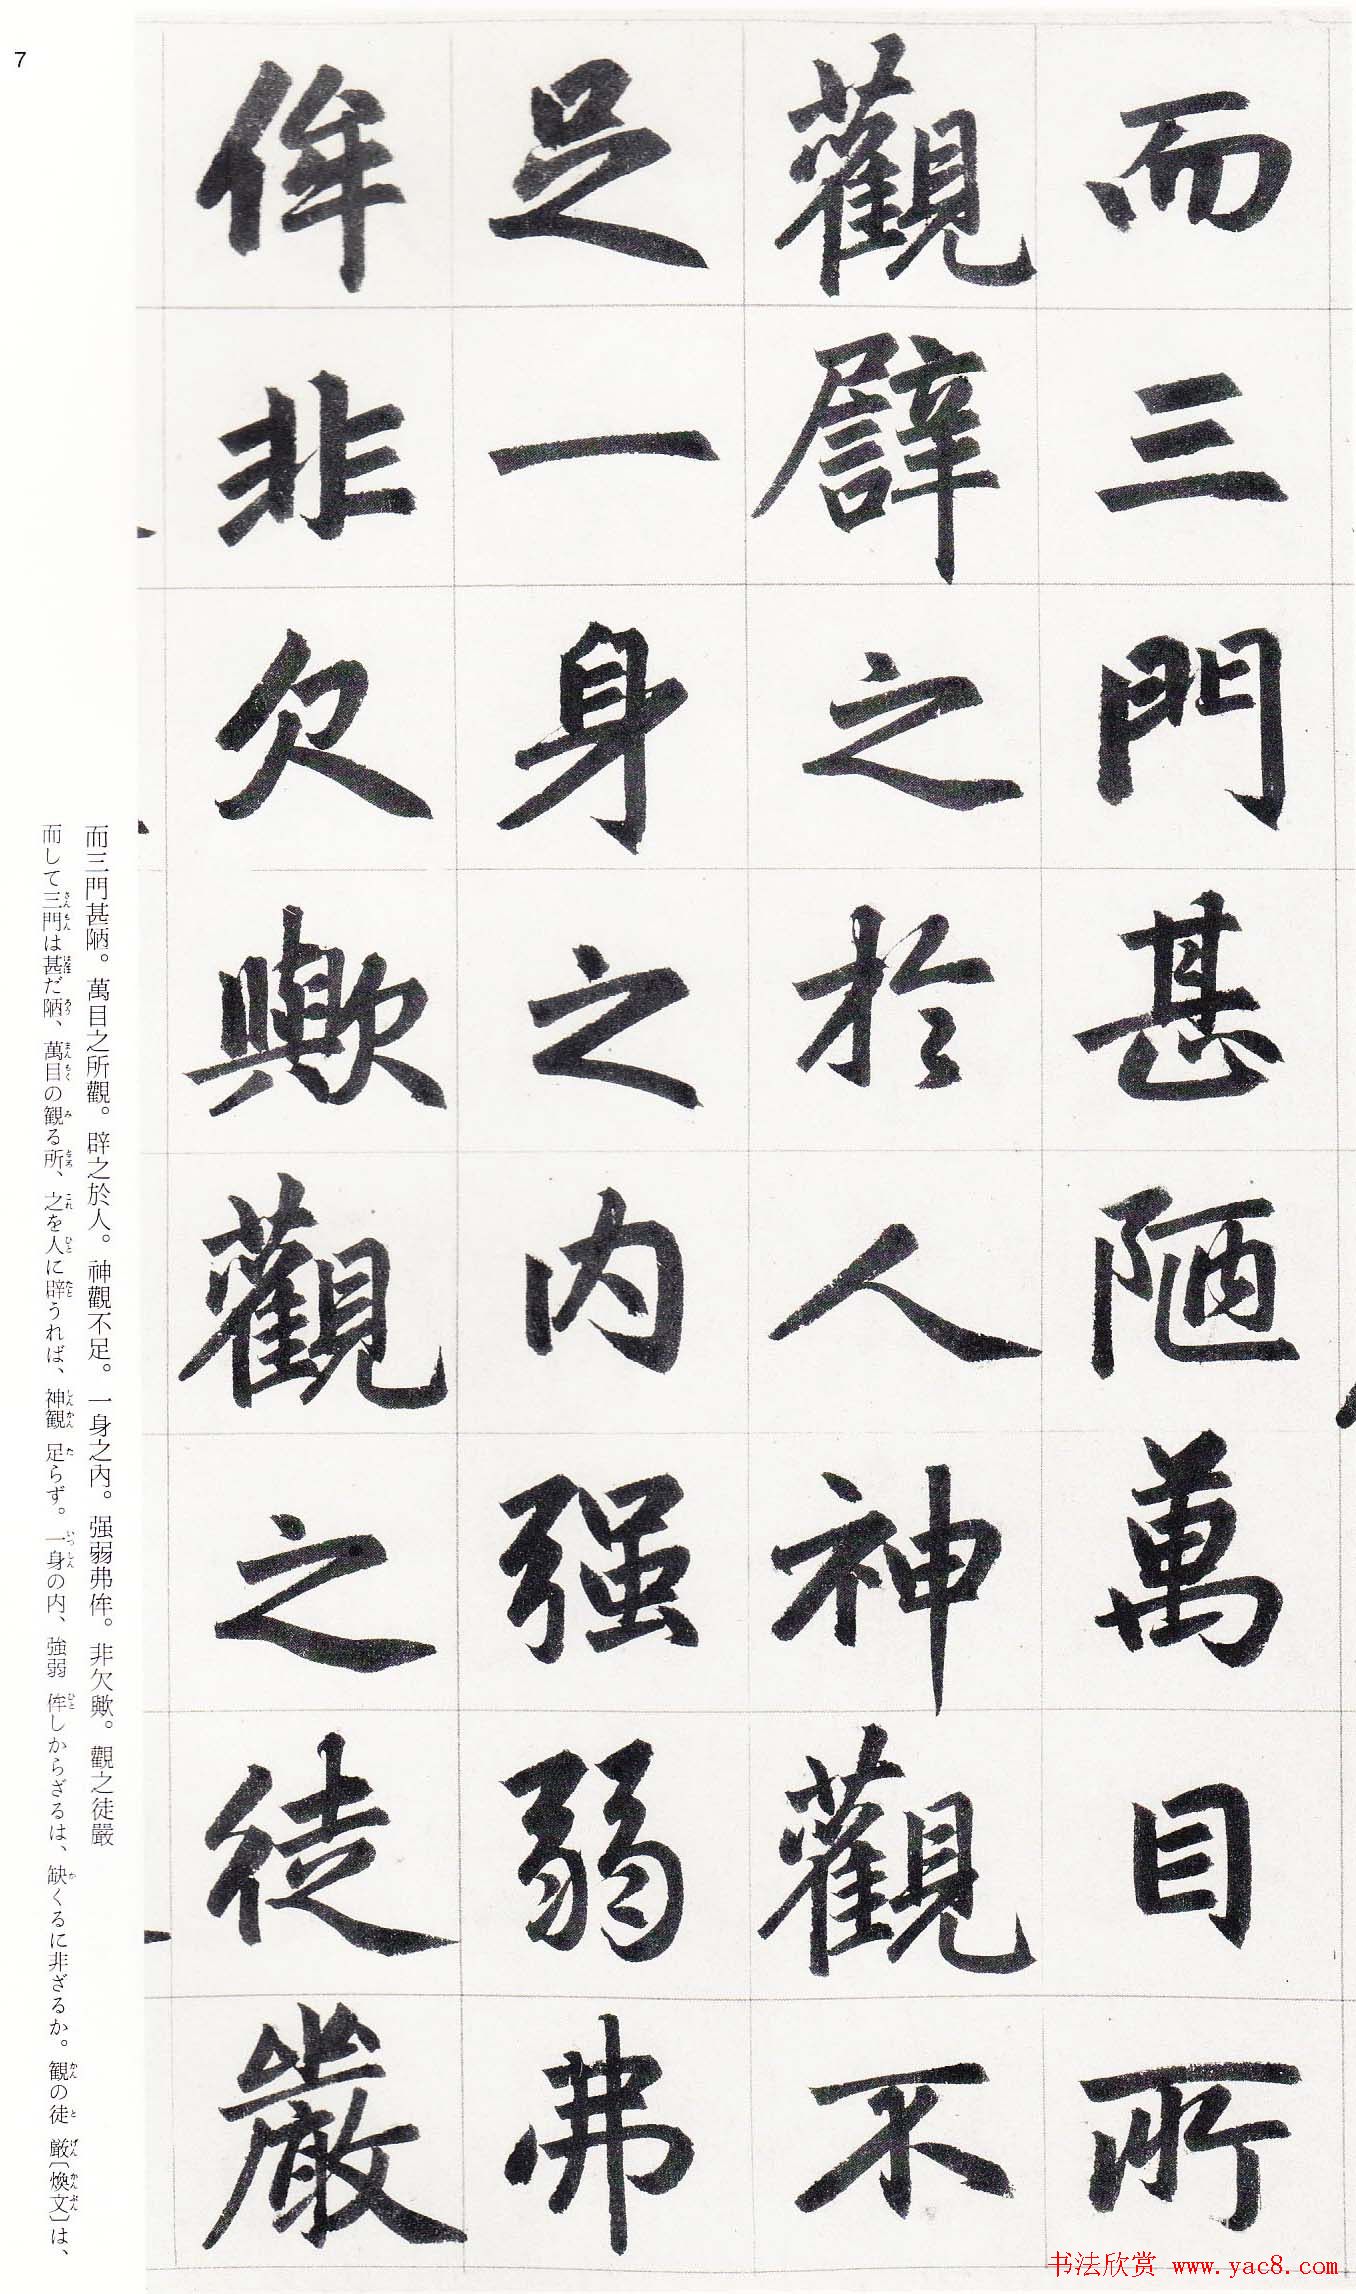 而三門甚陋萬目所
觀譬之於人神觀不
足一身之内强弱弗
侔非欠歟觀之徒嚴
而三門甚陋。萬目之所觀。辟之於人。神觀不足。一身之內。强弱弗侔。非欠歟。觀之徒嚴
而して三門は甚だ陋、萬目の観る所、之を人に辟うれば、神観 足らず。一身の内、強弱 侔しからざるは、缺くるに非ざるか。観の徒 厳〔煥文〕は、
7
书法欣赏 www.yac8.com